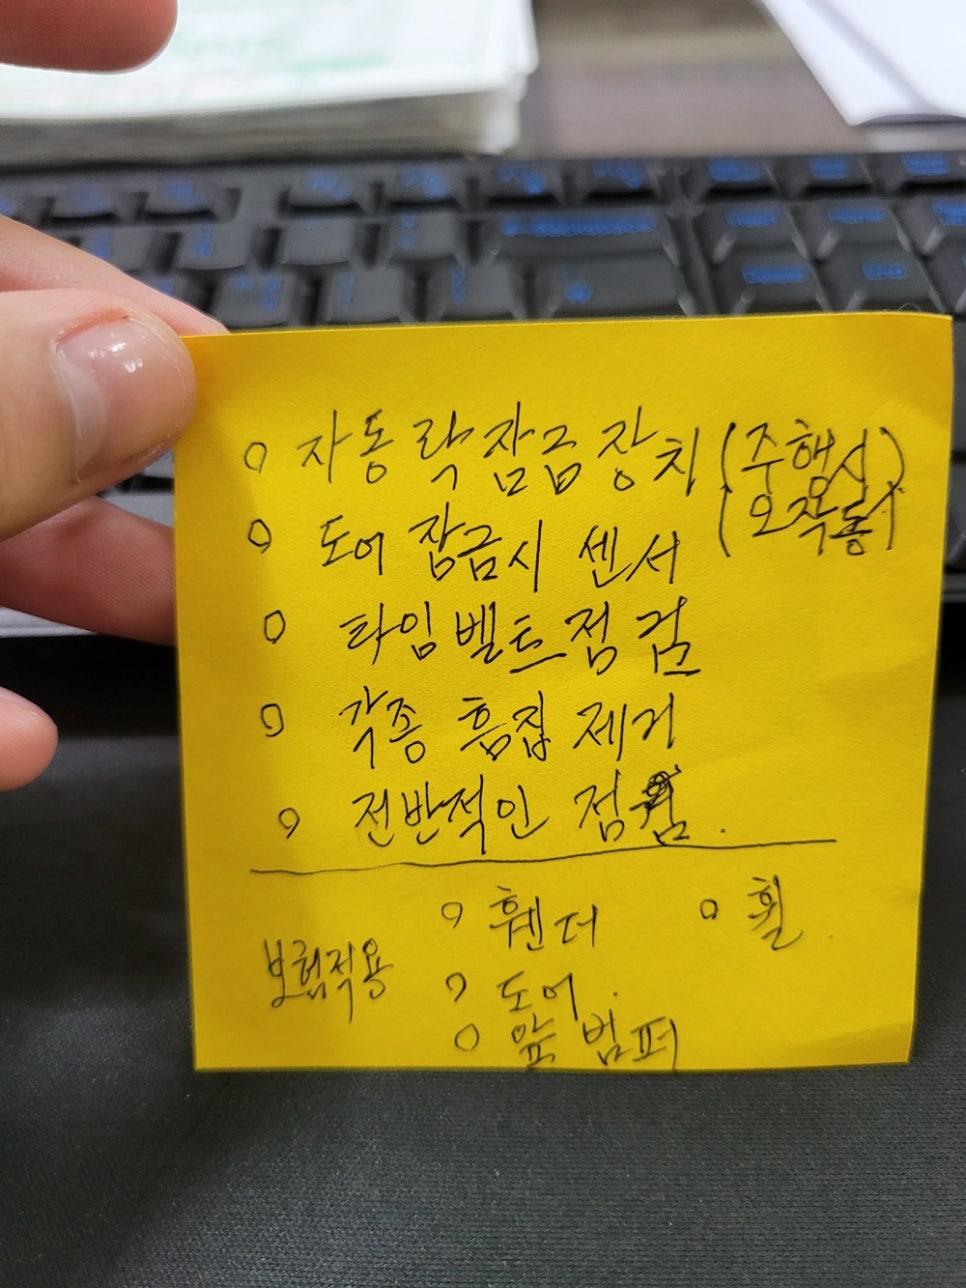 o 자동락 잠금장치 (주행시 오작동)
o 도어 잠금시 센서
o 타임벨트 점검
o 각종 흠집 제거
o 전반적인 점검.
보험적용
o 휀더
o 휠.
o 도어.
o 앞 범퍼